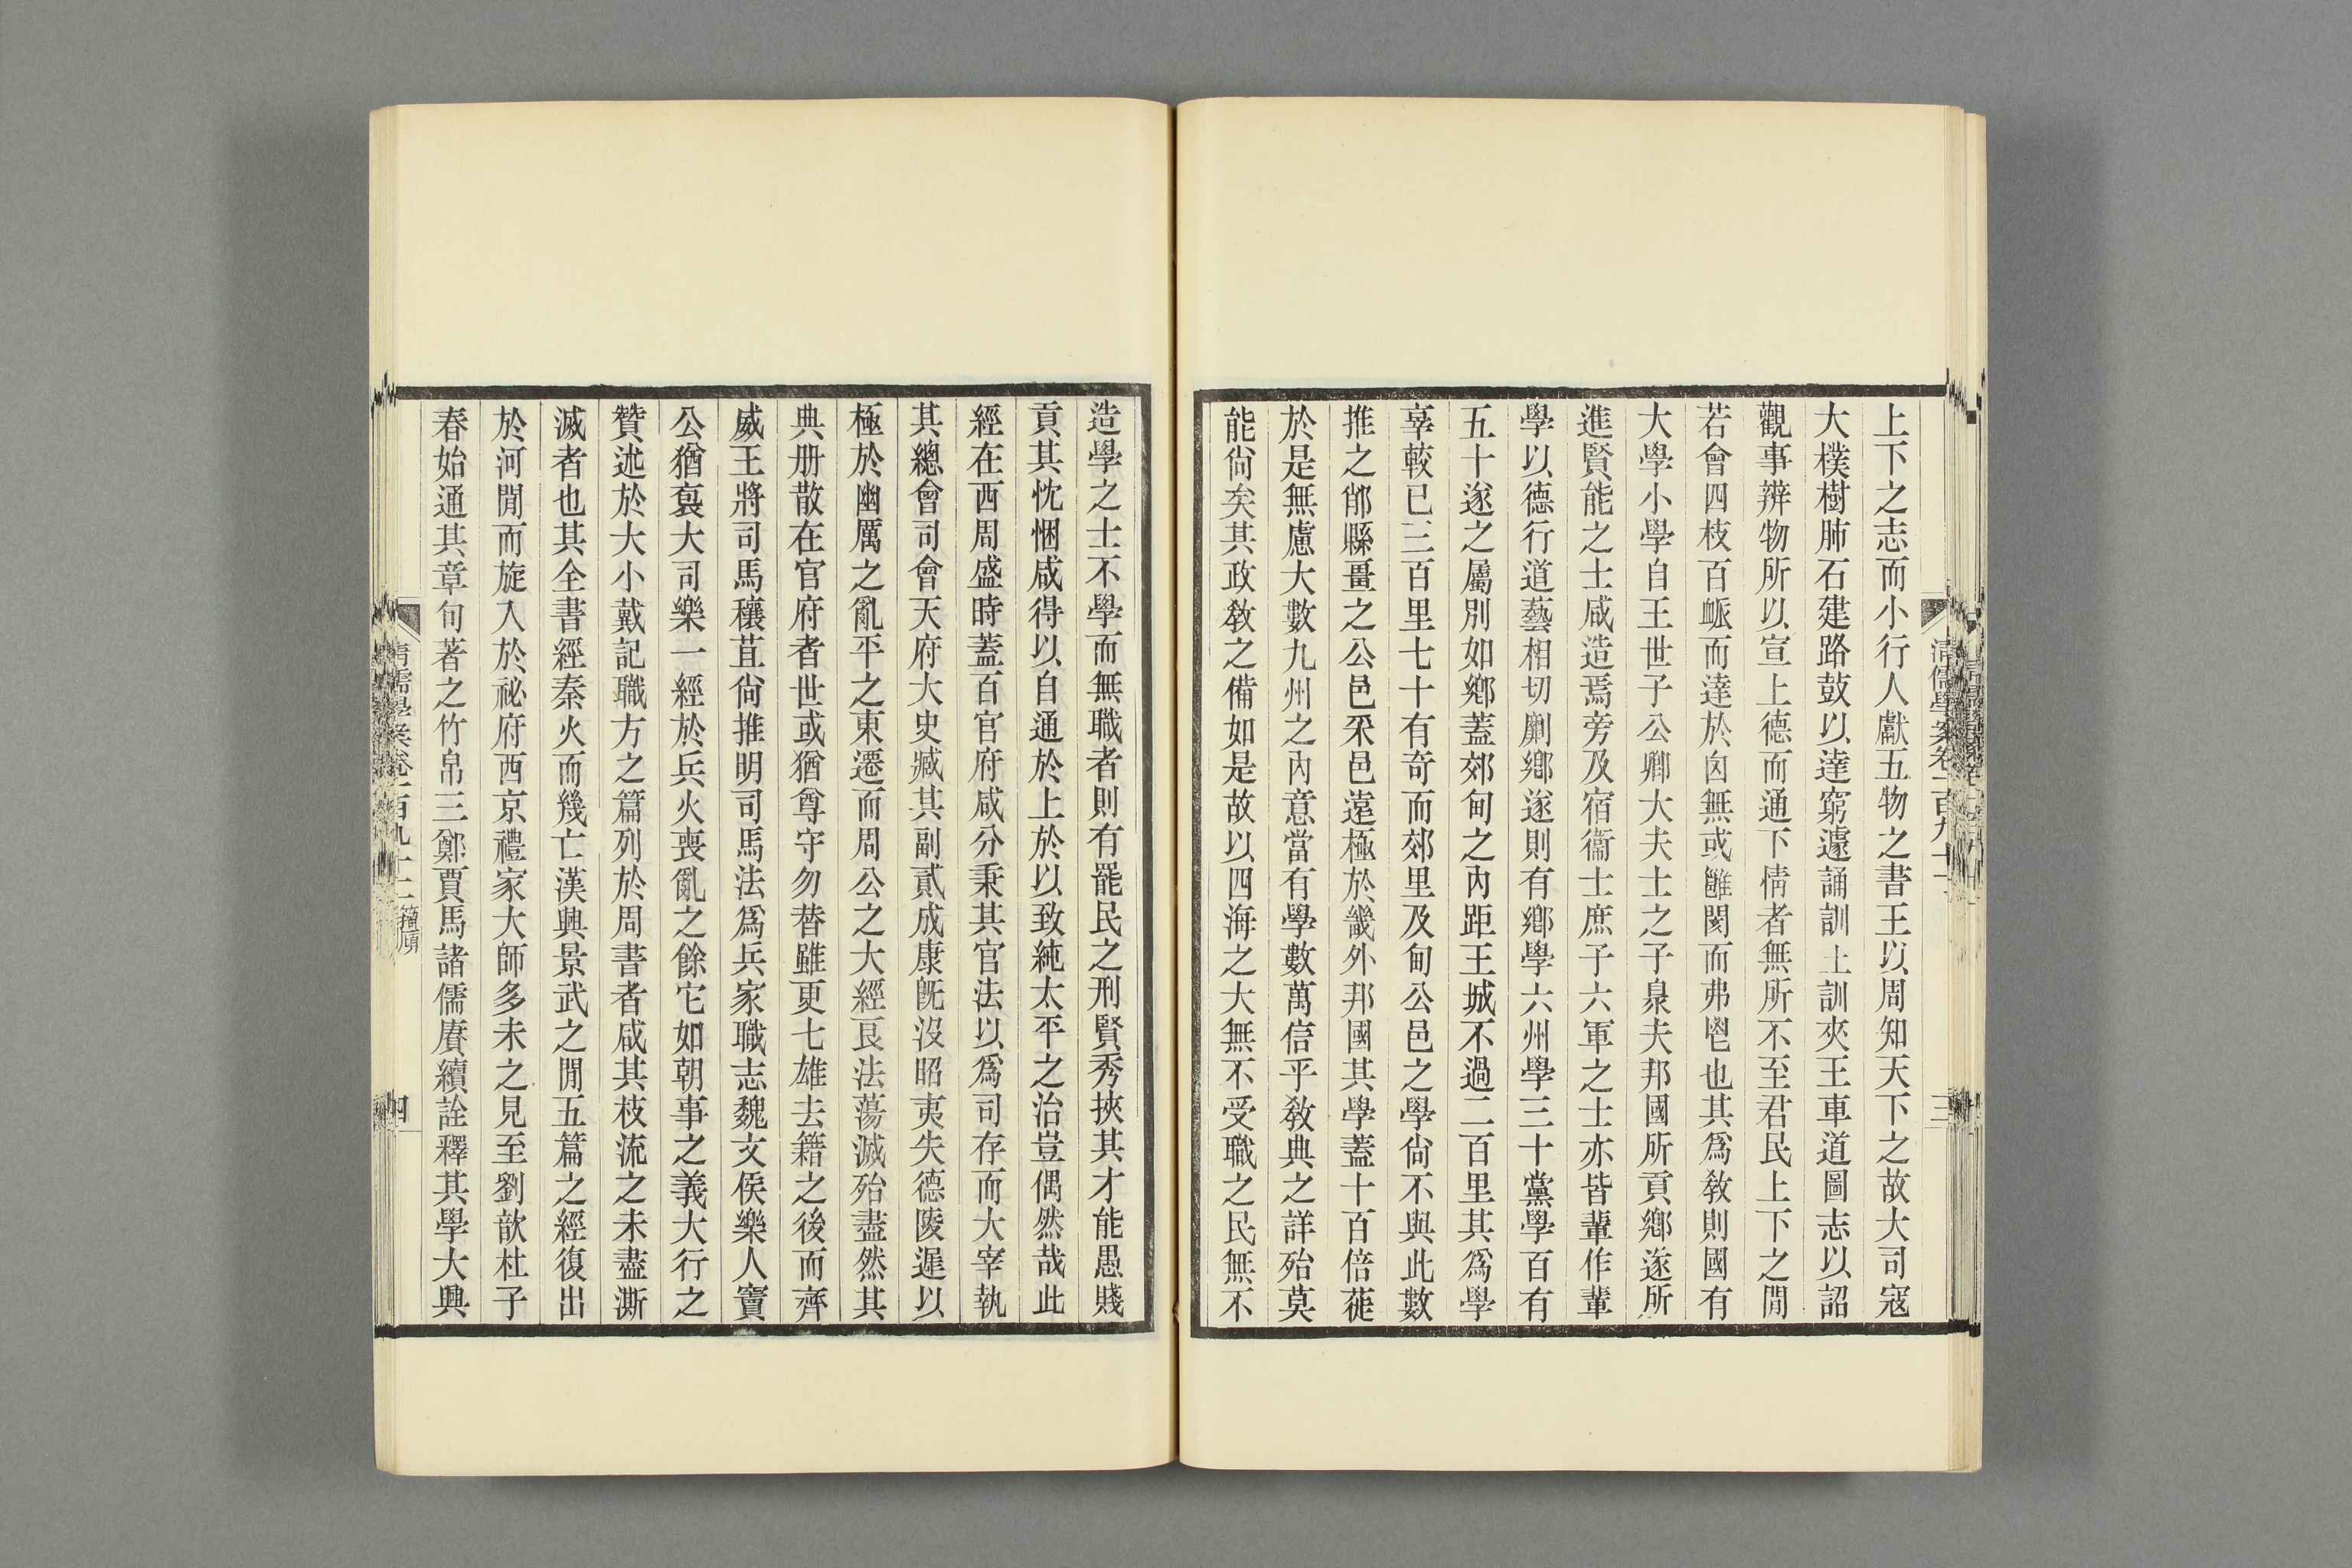 上下之志而小行人獻五物之書王以周知天下之故大司寇
大樸樹肺石建路鼓以達窮遽誦訓土訓夾王車道圖志以詔
觀事辨物所以宣上德而通下情者無所不至君民上下之閒
若會四枝百衇而達於囟無或雝閡而弗鬯也其爲教則國有
大學小學自王世子公卿大夫士之子臮夫邦國所貢鄉遂所
進賢能之士咸造焉旁及宿衞士庶子六軍之士亦皆輩作輩
學以德行道藝相切劘鄉遂則有鄉學六州學三十黨學百有
五十遂之屬別如鄉蓋郊甸之內距王城不過二百里其爲學
辜較已三百里七十有奇而郊里及甸公邑之學尙不與此數
推之郙縣畺之公邑采邑遠極於畿外邦國其學蓋十百倍蓰
於是無慮大數九州之內意當有學數萬信乎教典之詳殆莫
能尙矣其政教之備如是故以四海之大無不受職之民無不
造學之士不學而無職者則有罷民之刑賢秀挾其才能愚賤
貢其忱悃咸得以自通於上於以致純太平之治豈偶然哉此
經在西周盛時蓋百官府咸分秉其官法以爲司存而大宰執
其總會司會天府大史臧其副貳成康旣沒昭夷失德陵遲以
極於幽厲之亂平之東遷而周公之大經良法蕩滅殆盡然其
典册散在官府者世或猶尊守勿替雖更七雄去籍之後而齊
威王將司馬穰苴尙推明司馬法爲兵家職志魏文侯樂人竇
公猶褱大司樂一經於兵火喪亂之餘它如朝事之義大行之
贊述於大小戴記職方之篇列於周書者咸其枝流之未盡澌
滅者也其全書經秦火而幾亡漢興景武之閒五篇之經復出
於河閒而旋入於祕府西京禮家大師多未之見至劉歆杜子
春始通其章句著之竹帛三鄭賈馬諸儒賡續詮釋其學大興